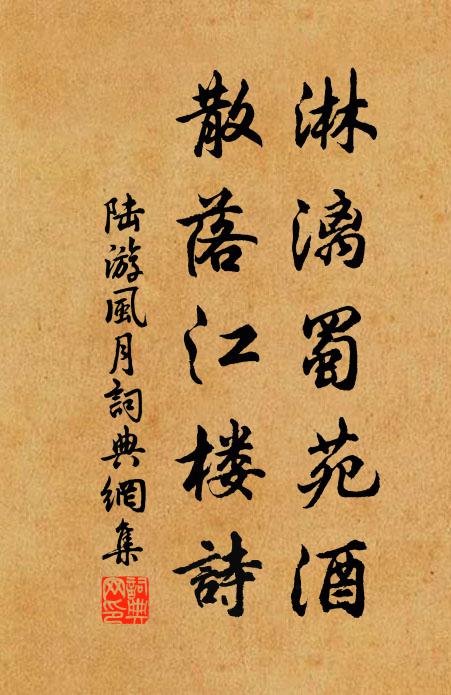 淋漓蜀苑酒
散落江楼詩
陆游風月詞典網集
詞典网印